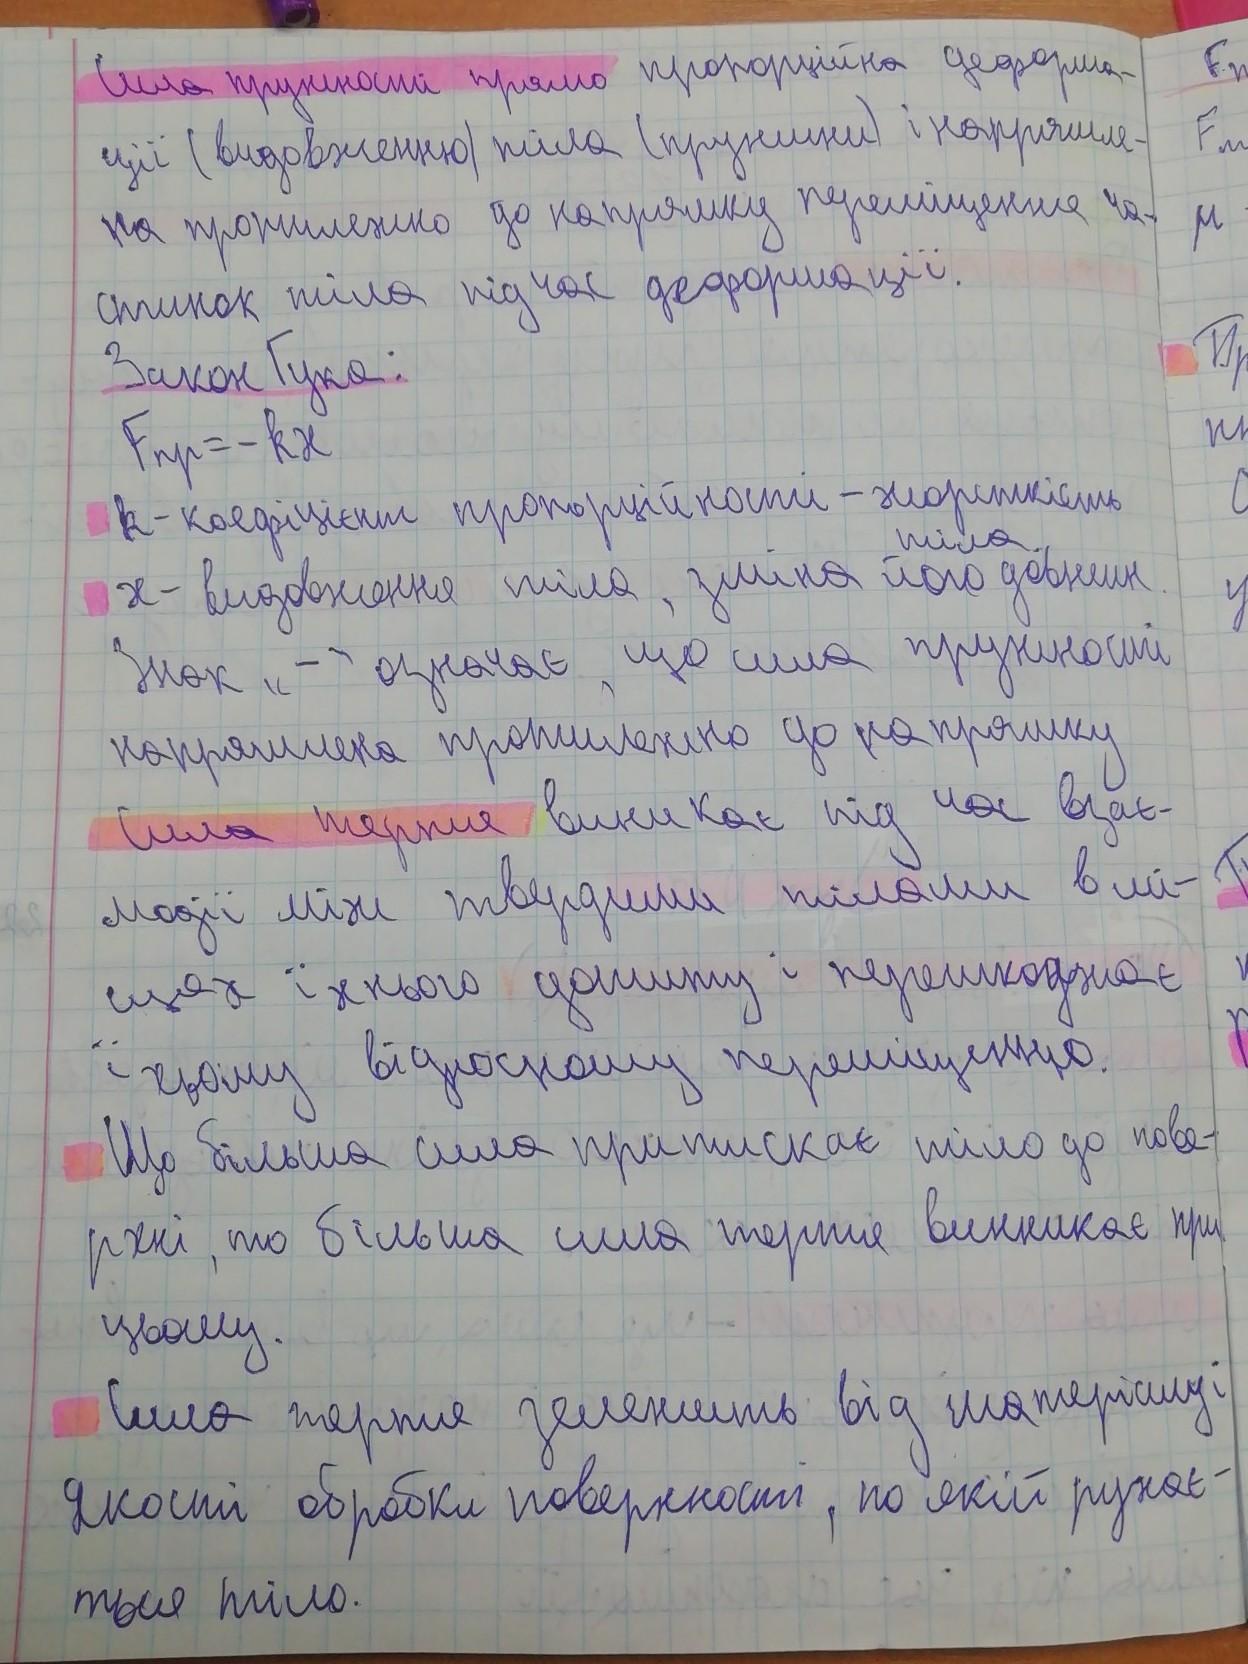 Сила пружності прямо пропорційна деформа-
ції (видовженню) тіла (пружини) і напрямле-
на протилежно до напрямку переміщення ча-
стинок тіла під час деформації.
Закон Гука:
Fпр=-kx
k-коефіцієнт пропорційності - жорсткість
тіла
x- видовження тіла, зміна його довжин.
Знак „-" означає, що сила пружності
напрямлена протилежно до напрямку
Сила тертя виникає під час взає-
модії між твердими тілами в мі-
сцях їхнього дотику і перешкоджає
їхьому відносному переміщенню.
Що більша сила притискає тіло до пове-
рхні, то більша сила тертя винникає при
цьому.
Сила тертя зележить від матеріалу і
якості обробки поверхності, по якій рухає-
ться тіло.
Fп
μ
Пр